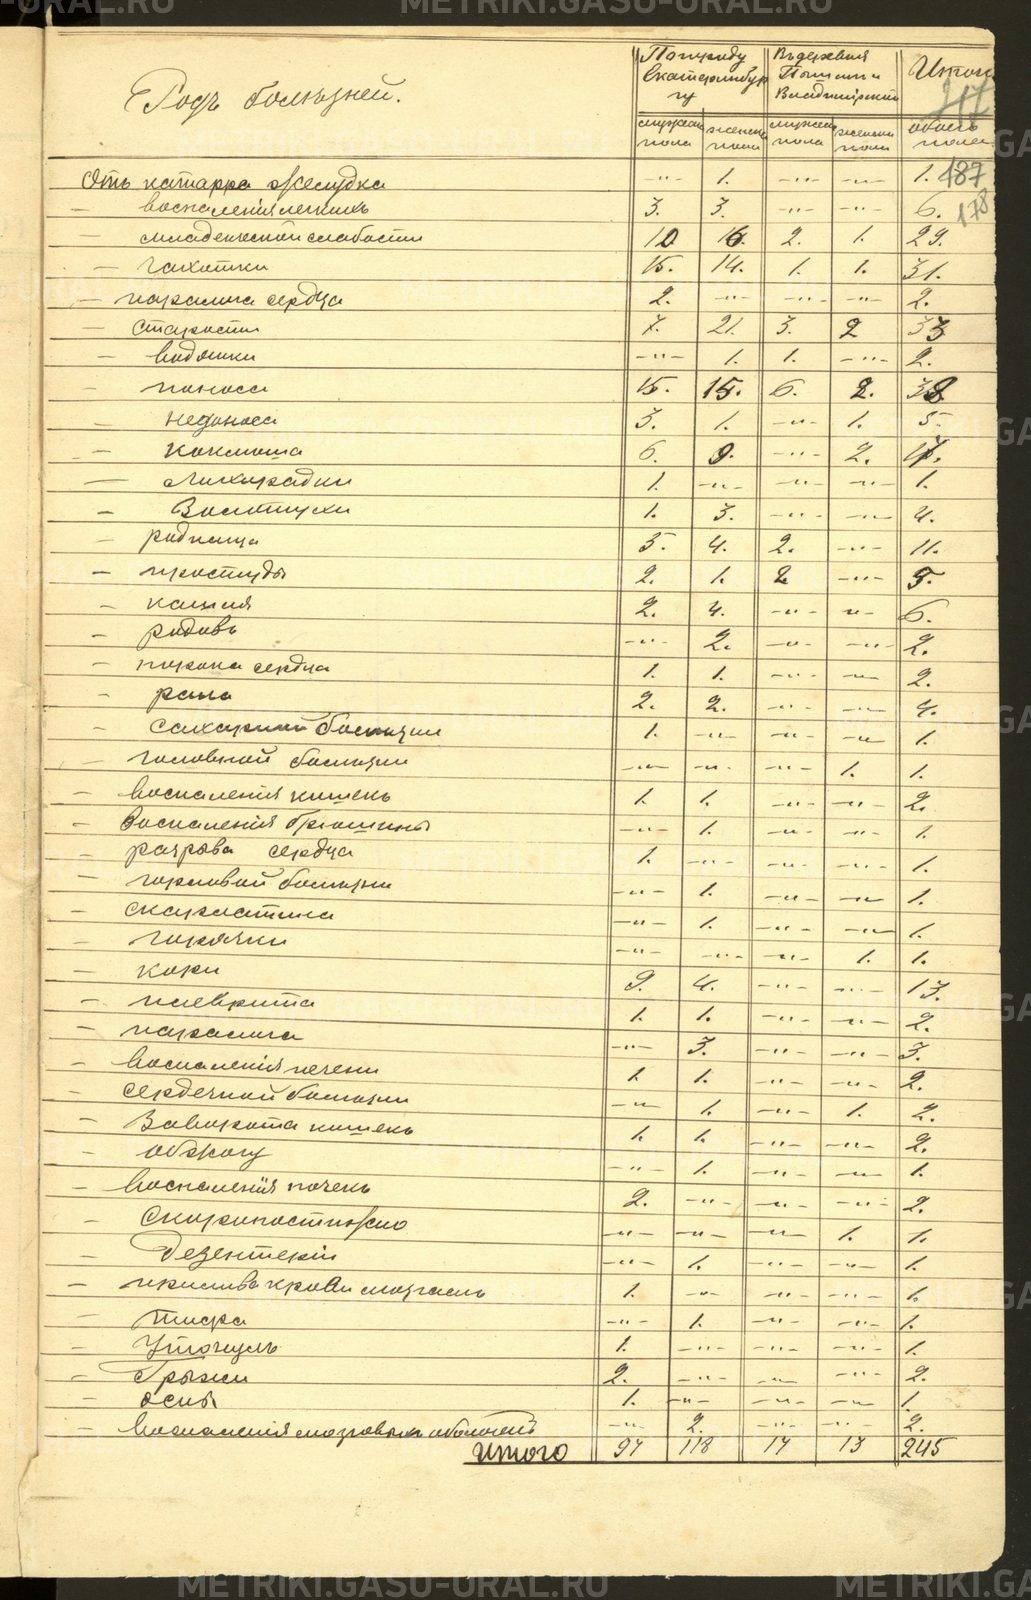 METRIKI.GASU-URAL.RU
Родъ болѣзней.
По городу Екатеринбургу
Въ деревнѧ
Владимірской
Итого
мужска пола
женска пола
мужска пола
женска пола
обоего пола
Отъ катарра желудка -"- 1. -"- -"- 1. 187
— воспаленія легкихъ 3. 3. -"- -"- 6. 178
— младенческой слабости 10 16. 2. 1. 29.
— чахотки 15. 14. 1. 1. 31.
— паралича сердца 2. -"- -"- -"- 2.
— старости 7. 21. 3. 2 33
— водянки -"- 1. 1. -"- 2.
— поноса 15. 15. 6. 2. 38
— недоноса 3. 1. -"- 1. 5.
— коклюша 6. 9. -"- 2. 17.
— лихорадки 1. -"- -"- -"- 1.
— Золотухи 1. 3. -"- -"- 4.
— родимца 5. 4. 2. -"- 11.
— простуды 2. 1. 2 -"- 5.
— кашля 2. 4. -"- -"- 6.
— родовъ -"- 2. -"- -"- 2.
— порока сердца 1. 1. -"- -"- 2.
— рака 2. 2. -"- -"- 4.
— сахарной болѣзни 1. -"- -"- -"- 1.
— головной болѣзни -"- -"- -"- 1. 1.
— воспаленія кишекъ 1. 1. -"- -"- 2.
— Воспаленія брюшины -"- 1. -"- -"- 1.
— разрыва сердца 1. -"- -"- -"- 1.
— горловой болѣзни -"- 1. -"- -"- 1.
— скарлатина -"- 1. -"- -"- 1.
— горячки -"- -"- -"- 1. 1.
— кори 9. 4. -"- -"- 13.
— плеврита 1. 1. -"- -"- 2.
— паралича -"- 3. -"- -"- 3.
— воспаленія печени 1. 1. -"- -"- 2.
— сердечной болѣзни -"- 1. -"- 1. 2.
— Заворота кишекъ 1. 1. -"- -"- 2.
— обжогу -"- 1. -"- -"- 1.
— воспаленія почекъ 2. -"- -"- -"- 2.
— Скоропостижно -"- -"- -"- 1. 1.
— Дезентеріи -"- 1. -"- -"- 1.
— прилива крови 1. -"- -"- -"- 1.
— тифа -"- 1. -"- -"- 1.
— Утонулъ 1. -"- -"- -"- 1.
— Грыжи 2. -"- -"- -"- 2.
— оспы 1. -"- -"- -"- 1.
— воспаленія мозговыхъ оболочекъ -"- 2. -"- -"- 2.
Итого 97 118 17 13 245
METRIKI.GASU-URAL.RU
METRIKI.GASU-URAL.RU